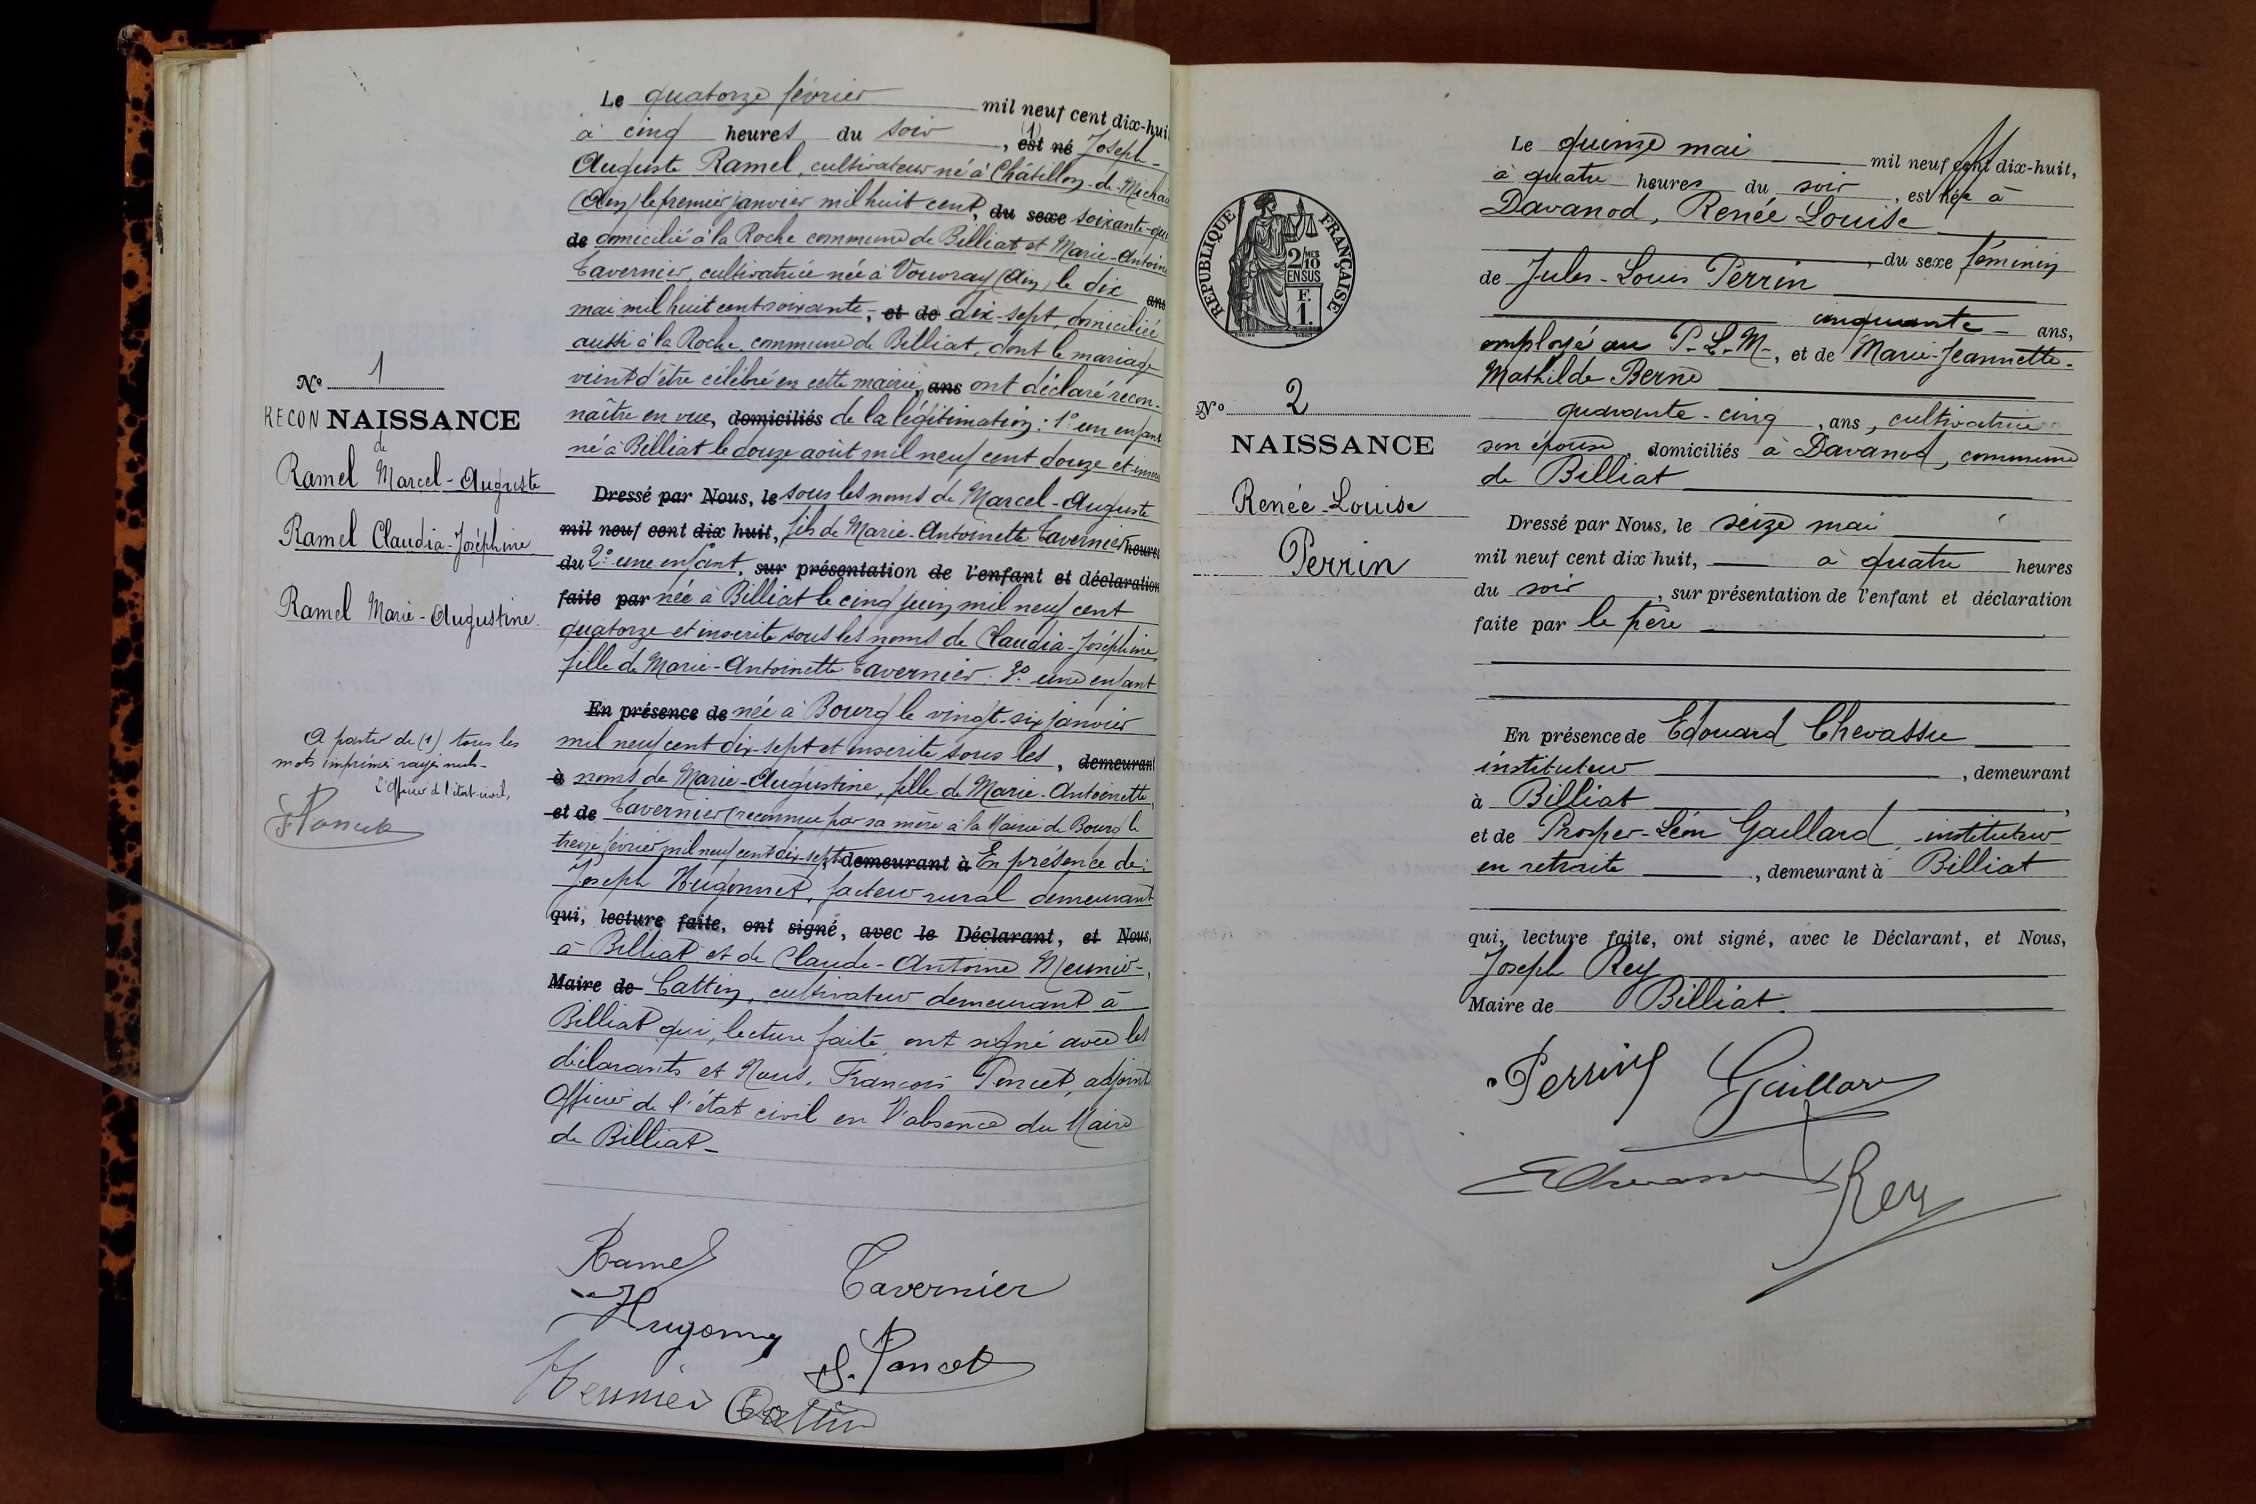 Le quatorze février mil neuf cent dix-hui
à cinq heures du soir (1), est né Joseph-
Auguste Ramel, cultivateur né à Châtillon-de-Michail
(Ain) le premier janvier mil huit cent, du sexe soixante-qui
de domicilié à la Roche commune de Billiat et Marie-Antoine
Tavernier, cultivatrice née à Vouvray (Ain) le dix ans
mai mil huit cent soixante, et de dix-sept, domiciliée
aussi à la Roche, commune de Billiat, dont le mariage
vient d'être célébré en cette mairie, ans ont déclaré recon-
naître en vue, domiciliés de la légitimation : 1° un enfant
né à Billiat le douze août mil neuf cent douze et inscrit
Dressé par Nous, le sous les noms de Marcel-Auguste
mil neuf cent dix huit, fils de Marie-Antoinette Tavernier heures
du 2° une enfant, sur présentation de l'enfant et déclaration
faite par née à Billiat le cinq juin mil neuf cent
quatorze et inscrite sous les noms de Claudia-Joséphine,
fille de Marie-Antoinette Tavernier. 3° une enfant
En présence de née à Bourg le vingt-six janvier
mil neuf cent dix-sept et inscrite sous les, demeurant
à noms de Marie-Augustine, fille de Marie-Antoinette,
et de Tavernier (reconnue par sa mère à la Mairie de Bourg le
treize février mil neuf cent dix-sept, demeurant à En présence de :
Joseph Hugonnet, facteur rural demeurant
qui, lecture faite, ont signé, avec le Déclarant, et Nous,
à Billiat et de Claude-Antoine Meunier-,
Maire de Cattin, cultivateur demeurant à
Billiat qui, lecture faite, ont signé avec les
déclarants et Nous, François Poncet, adjoint
Officier de l'état civil en l'absence du Maire
de Billiat-
N° 1
RECONNAISSANCE
de
Ramel Marcel-Auguste
Ramel Claudia-Joséphine
Ramel Marie-Augustine.
A partir de (1) tous les
mots imprimés rayés nuls-
L'officier de l'état-civil,
F. Poncet
Ramel
Tavernier
Hugonnet
F. Poncet
Meunier Cattin
REPUBLIQUE FRANÇAISE
2/10 MES
EN SUS
F.
1.
N° 2
NAISSANCE
Renée-Louise
Perrin
Le quinze mai mil neuf cent dix-huit,
à quatre heures du soir, est née à
Davanod, Renée Louise
, du sexe féminin
de Jules-Louis Perrin
cinquante ans,
employé au P.-L.-M-, et de Marie-Jeannette-
Mathilde Berne
quarante-cinq, ans, cultivatrice
son épouse, domiciliés à Davanod, commune
de Billiat
Dressé par Nous, le seize mai
mil neuf cent dix huit, à quatre heures
du soir, sur présentation de l'enfant et déclaration
faite par le père
En présence de Edouard Chevassu
instituteur, demeurant
à Billiat,
et de Prosper-Léon Gaillard, instituteur
en retraite, demeurant à Billiat
qui, lecture faite, ont signé, avec le Déclarant, et Nous,
Joseph Rey
Maire de Billiat.
Perrin Gaillard
E Chevassu
Rey